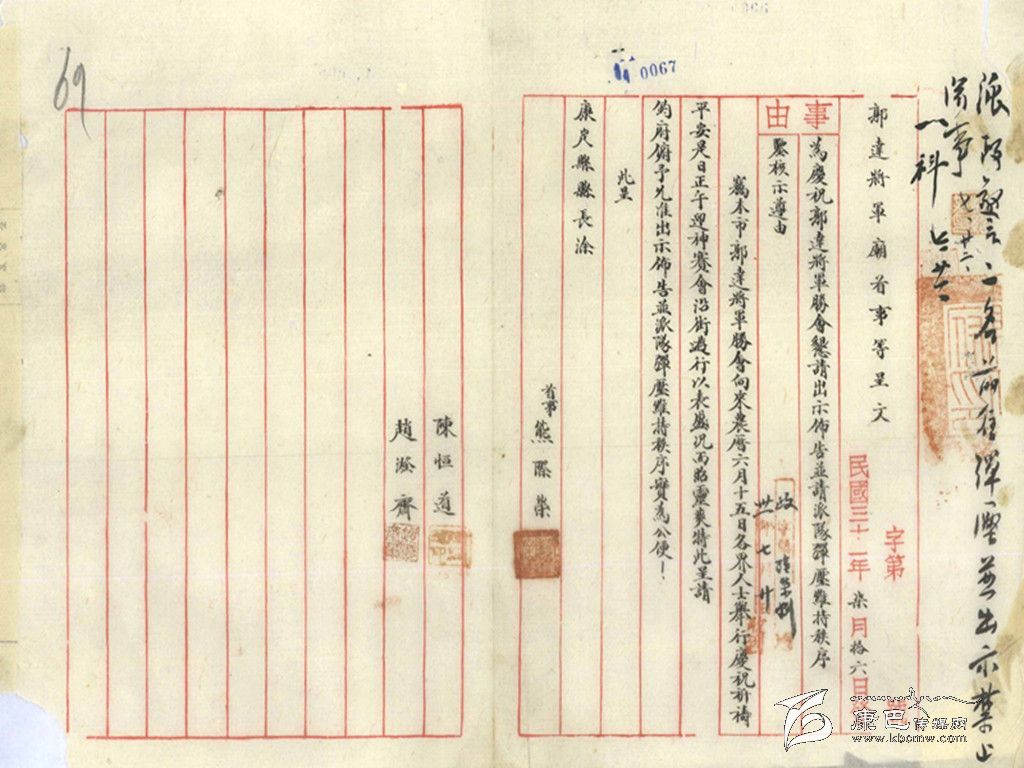 0067
69
一科
郭達將軍廟首事等呈文
字第 號
民國三十一年柒月拾六日
事由
為慶祝郭達將軍勝會懇請出示佈告並請派隊彈壓維持秩序
鑒核示遵由
竊本市郭達將軍勝會向來農曆六月十五日各界人士舉行慶祝祈禱
平安是日正午迎神賽會沿街遊行以表盛況而昭靈爽特此呈請
鈞府俯予允准出示佈告並派隊彈壓維持秩序實為公便!
此呈
康定縣縣長涂
首事 熊際榮
陳恒道
趙滋齊
康巴传媒网
www.kbcmw.com